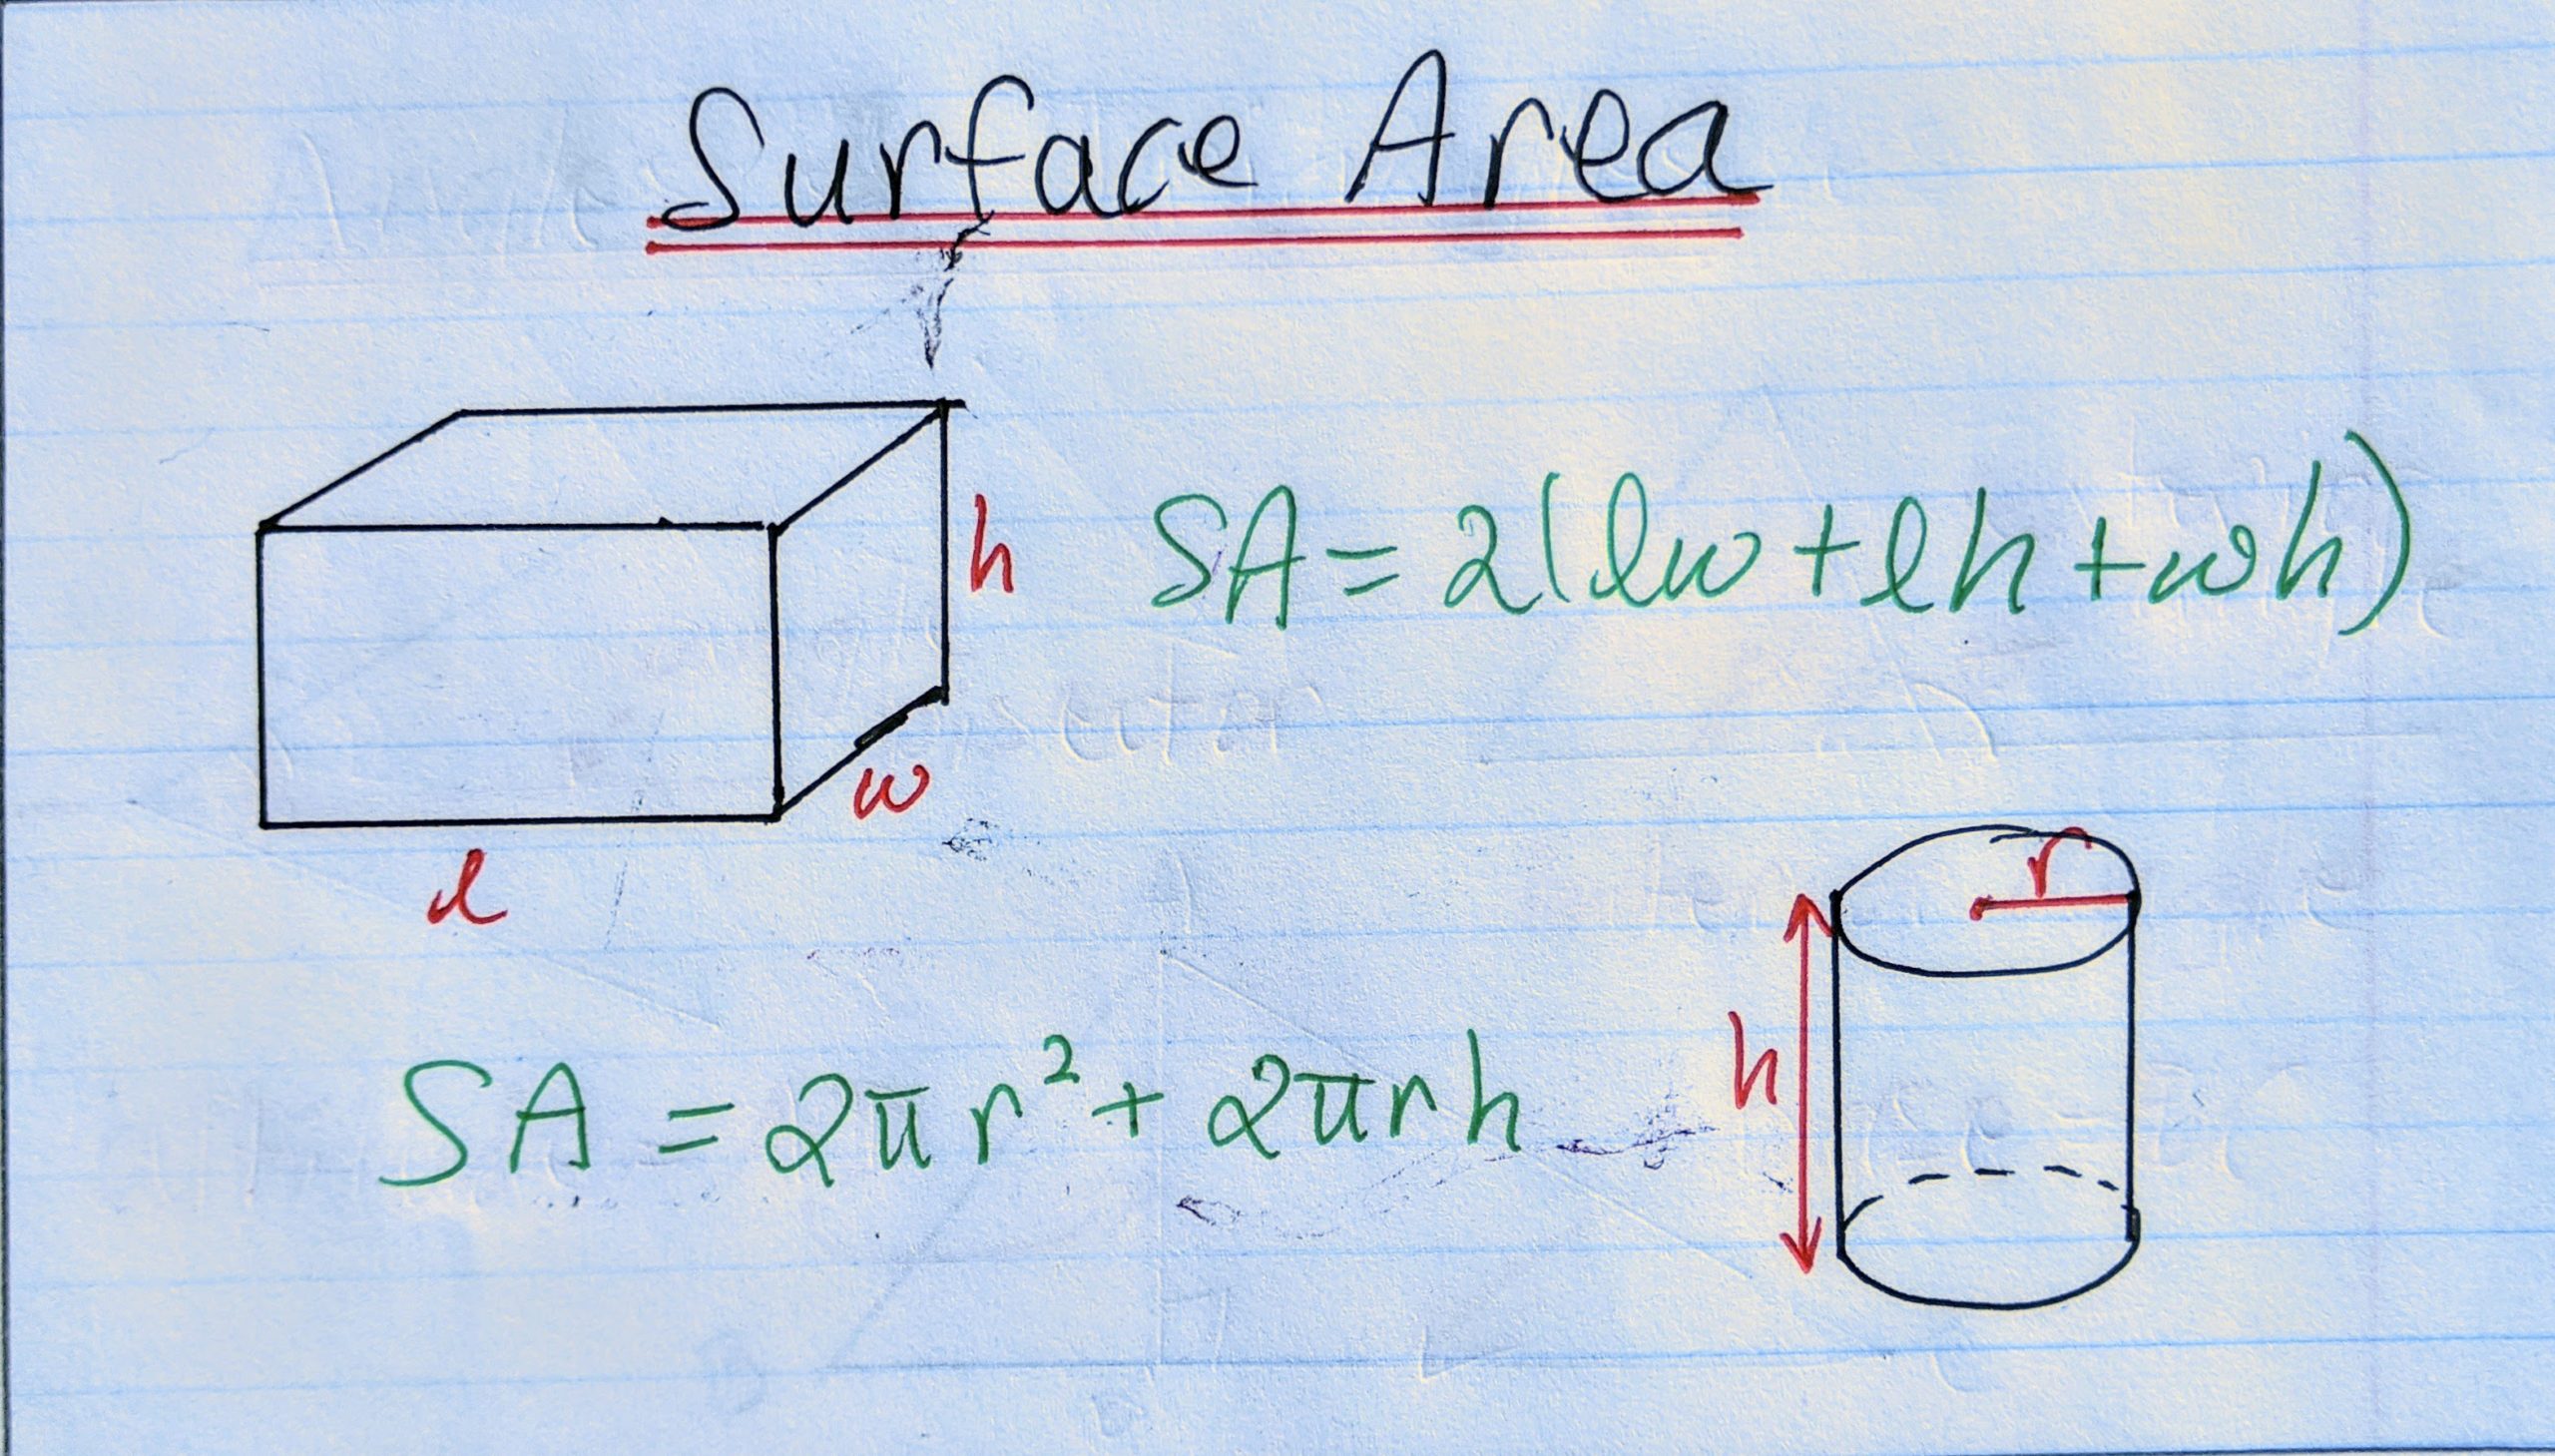 Surface Area
h
SA = 2(lw + lh + wh)
w
l
r
h
SA = 2πr² + 2πrh